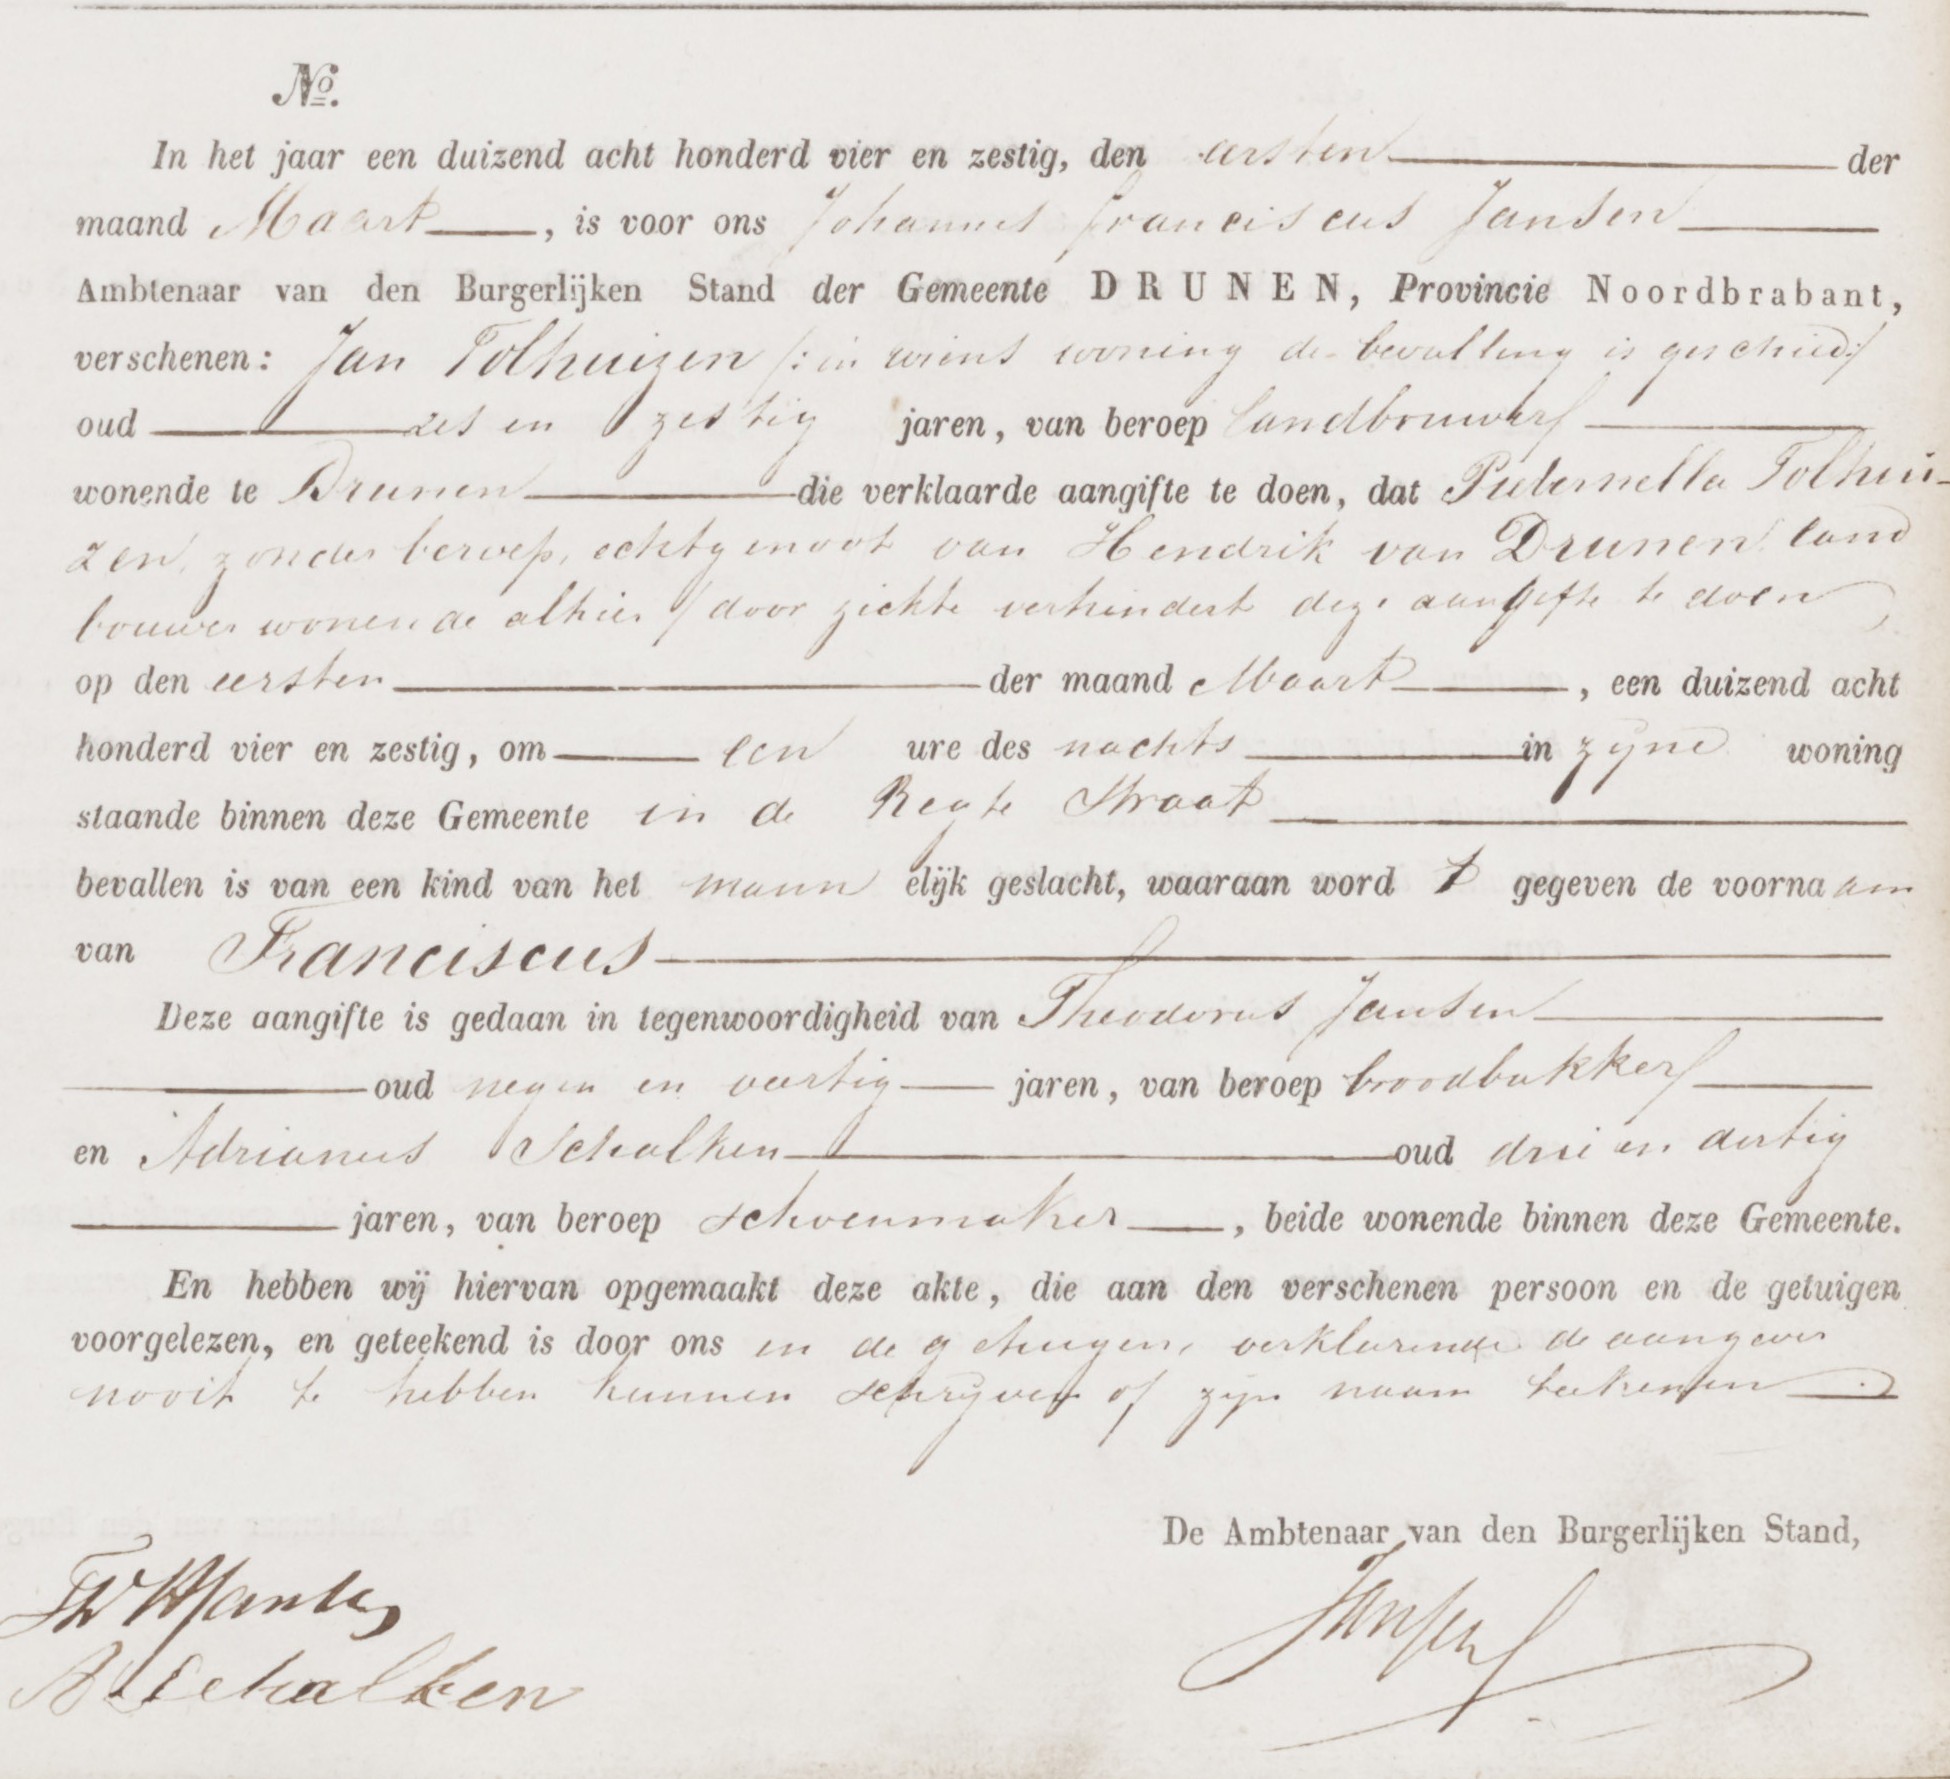 No.
In het jaar een duizend acht honderd vier en zestig, den eersten der
maand Maart, is voor ons Johannes Franciscus Jansen
Ambtenaar van den Burgerlijken Stand der Gemeente DRUNEN, Provincie Noordbrabant,
verschenen: Jan Tolhuizen /: in wiens woning de bevalling is geschied :/
oud zes en zestig jaren, van beroep landbouwer
wonende te Drunen die verklaarde aangifte te doen, dat Pieternella Tolhui-
zen, zonder beroep, echtgenoot van Hendrik van Drunen land
bouwer wonende alhier / door ziekte verhindert deze aangifte te doen
op den eersten der maand Maart, een duizend acht
honderd vier en zestig, om een ure des nachts in zijne woning
staande binnen deze Gemeente in de Regte Straat
bevallen is van een kind van het mann elijk geslacht, waaraan word t gegeven de voorna am
van Franciscus
Deze aangifte is gedaan in tegenwoordigheid van Theodorus Jansen
oud negen en veertig jaren, van beroep broodbakker
en Adrianus Schalken oud drie en dertig
jaren, van beroep schoenmaker, beide wonende binnen deze Gemeente.
En hebben wij hiervan opgemaakt deze akte, die aan den verschenen persoon en de getuigen
voorgelezen, en geteekend is door ons en de getuigen, verklarende de aangever
nooit te hebben kunnen schrijven of zijn naam teekenen
De Ambtenaar van den Burgerlijken Stand,
Jansen
A Schalken